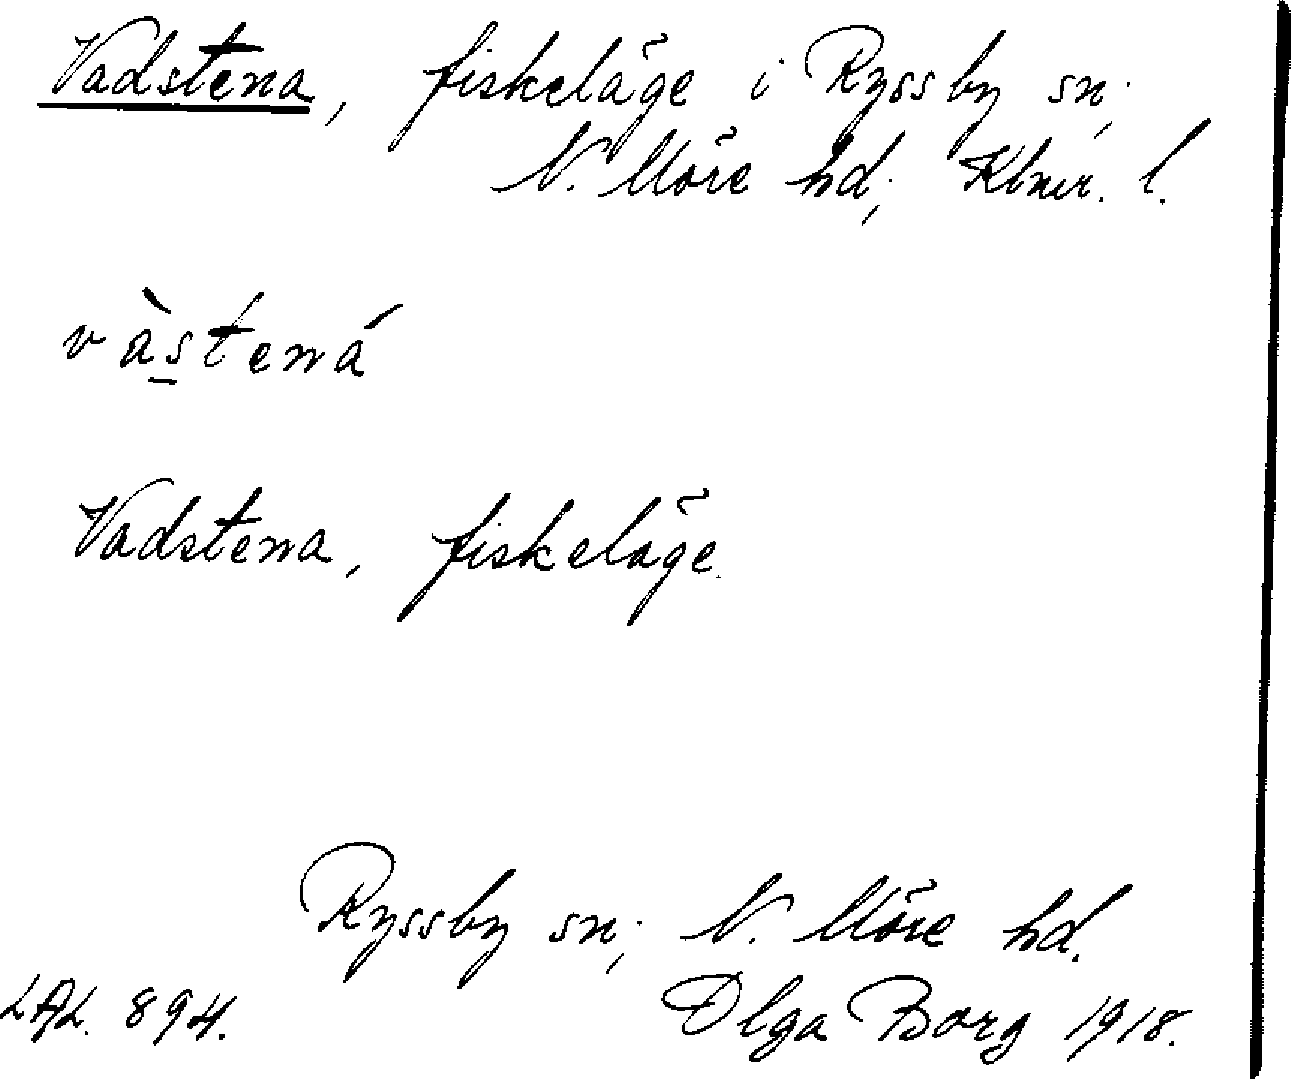 Vadstena, fiskeläge i Ryssby sn.,
N. Möre hd., Klmr. l.
vàs̱tená
Vadstena, fiskeläge.
Ryssby sn., N. Möre hd.
LAL. 894. Olga Borg 1918.